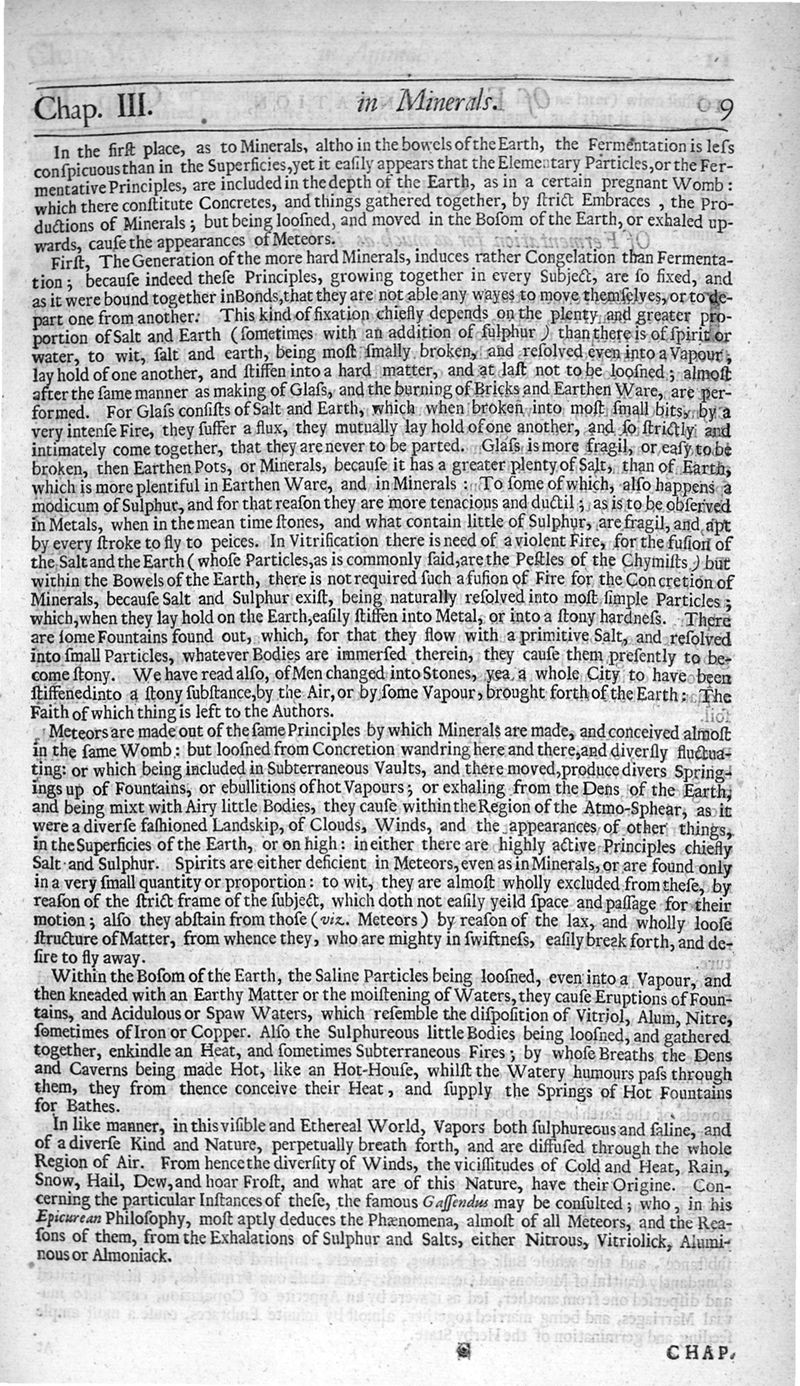 Chap. III. in Minerals. 9
In the firſt place, as to Minerals, altho in the bowels of the Earth, the Fermentation is leſs
conſpicuous than in the Superficies, yet it eaſily appears that the Elementary Particles, or the Fer-
mentative Principles, are included in the depth of the Earth, as in a certain pregnant Womb:
which there conſtitute Concretes, and things gathered together, by ſtrict Embraces , the Pro-
ductions of Minerals; but being looſned, and moved in the Boſom of the Earth, or exhaled up-
wards, cauſe the appearances of Meteors.
Firſt, The Generation of the more hard Minerals, induces rather Congelation than Fermenta-
tion; becauſe indeed theſe Principles, growing together in every Subject, are ſo fixed, and
as it were bound together in Bonds, that they are not able any wayes to move themſelves, or to de-
part one from another. This kind of fixation chiefly depends on the plenty and greater pro-
portion of Salt and Earth (ſometimes with an addition of ſulphur) than there is of ſpirit or
water, to wit, ſalt and earth, being moſt ſmally broken, and reſolved even into a Vapour,
lay hold of one another, and ſtiffen into a hard matter, and at laſt not to be looſned; almoſt
after the ſame manner as making of Glaſs, and the burning of Bricks and Earthen Ware, are per-
formed. For Glaſs conſiſts of Salt and Earth, which when broken into moſt ſmall bits, by a
very intenſe Fire, they ſuffer a flux, they mutually lay hold of one another, and ſo ſtrictly and
intimately come together, that they are never to be parted. Glaſs is more fragil, or eaſy to be
broken, then Earthen Pots, or Minerals, becauſe it has a greater plenty of Salt, than of Earth,
which is more plentiful in Earthen Ware, and in Minerals : To ſome of which, alſo happens a
modicum of Sulphur, and for that reaſon they are more tenacious and ductil; as is to be obſerved
in Metals, when in the mean time ſtones, and what contain little of Sulphur, are fragil, and apt
by every ſtroke to fly to peices. In Vitrification there is need of a violent Fire, for the fuſion of
the Salt and the Earth (whoſe Particles, as is commonly ſaid, are the Peſtles of the Chymiſts) but
within the Bowels of the Earth, there is not required ſuch a fuſion of Fire for the Concretion of
Minerals, becauſe Salt and Sulphur exiſt, being naturally reſolved into moſt ſimple Particles;
which, when they lay hold on the Earth, eaſily ſtiffen into Metal, or into a ſtony hardneſs. There
are ſome Fountains found out, which, for that they flow with a primitive Salt, and reſolved
into ſmall Particles, whatever Bodies are immerſed therein, they cauſe them preſently to be-
come ſtony. We have read alſo, of Men changed into Stones, yea a whole City to have been
ſtiffened into a ſtony ſubſtance, by the Air, or by ſome Vapour, brought forth of the Earth: The
Faith of which thing is left to the Authors.
Meteors are made out of the ſame Principles by which Minerals are made, and conceived almoſt
in the ſame Womb: but looſned from Concretion wandring here and there, and diverſly fluctua-
ting: or which being included in Subterraneous Vaults, and there moved, produce divers Spring-
ings up of Fountains, or ebullitions of hot Vapours; or exhaling from the Dens of the Earth,
and being mixt with Airy little Bodies, they cauſe within the Region of the Atmo-Sphear, as it
were a diverſe faſhioned Landskip, of Clouds, Winds, and the appearances of other things,
in the Superficies of the Earth, or on high: in either there are highly active Principles chiefly
Salt and Sulphur. Spirits are either deficient in Meteors, even as in Minerals, or are found only
in a very ſmall quantity or proportion: to wit, they are almoſt wholly excluded from theſe, by
reaſon of the ſtrict frame of the ſubject, which doth not eaſily yeild ſpace and paſſage for their
motion; alſo they abſtain from thoſe (viz. Meteors) by reaſon of the lax, and wholly looſe
ſtructure of Matter, from whence they, who are mighty in ſwiftneſs, eaſily break forth, and de-
ſire to fly away.
Within the Boſom of the Earth, the Saline Particles being looſned, even into a Vapour, and
then kneaded with an Earthy Matter or the moiſtening of Waters, they cauſe Eruptions of Foun-
tains, and Acidulous or Spaw Waters, which reſemble the diſpoſition of Vitriol, Alum, Nitre,
ſometimes of Iron or Copper. Alſo the Sulphureous little Bodies being looſned, and gathered
together, enkindle an Heat, and ſometimes Subterraneous Fires; by whoſe Breaths the Dens
and Caverns being made Hot, like an Hot-Houſe, whilſt the Watery humours paſs through
them, they from thence conceive their Heat, and ſupply the Springs of Hot Fountains
for Bathes.
In like manner, in this viſible and Ethereal World, Vapors both ſulphureous and ſaline, and
of a diverſe Kind and Nature, perpetually breath forth, and are diffuſed through the whole
Region of Air. From hence the diverſity of Winds, the viciſſitudes of Cold and Heat, Rain,
Snow, Hail, Dew, and hoar Froſt, and what are of this Nature, have their Origine. Con-
cerning the particular Inſtances of theſe, the famous Gaſſendus may be conſulted; who, in his
Epicurean Philoſophy, moſt aptly deduces the Phænomena, almoſt of all Meteors, and the Rea-
ſons of them, from the Exhalations of Sulphur and Salts, either Nitrous, Vitriolick, Alumi-
nous or Almoniack.
CHAP.